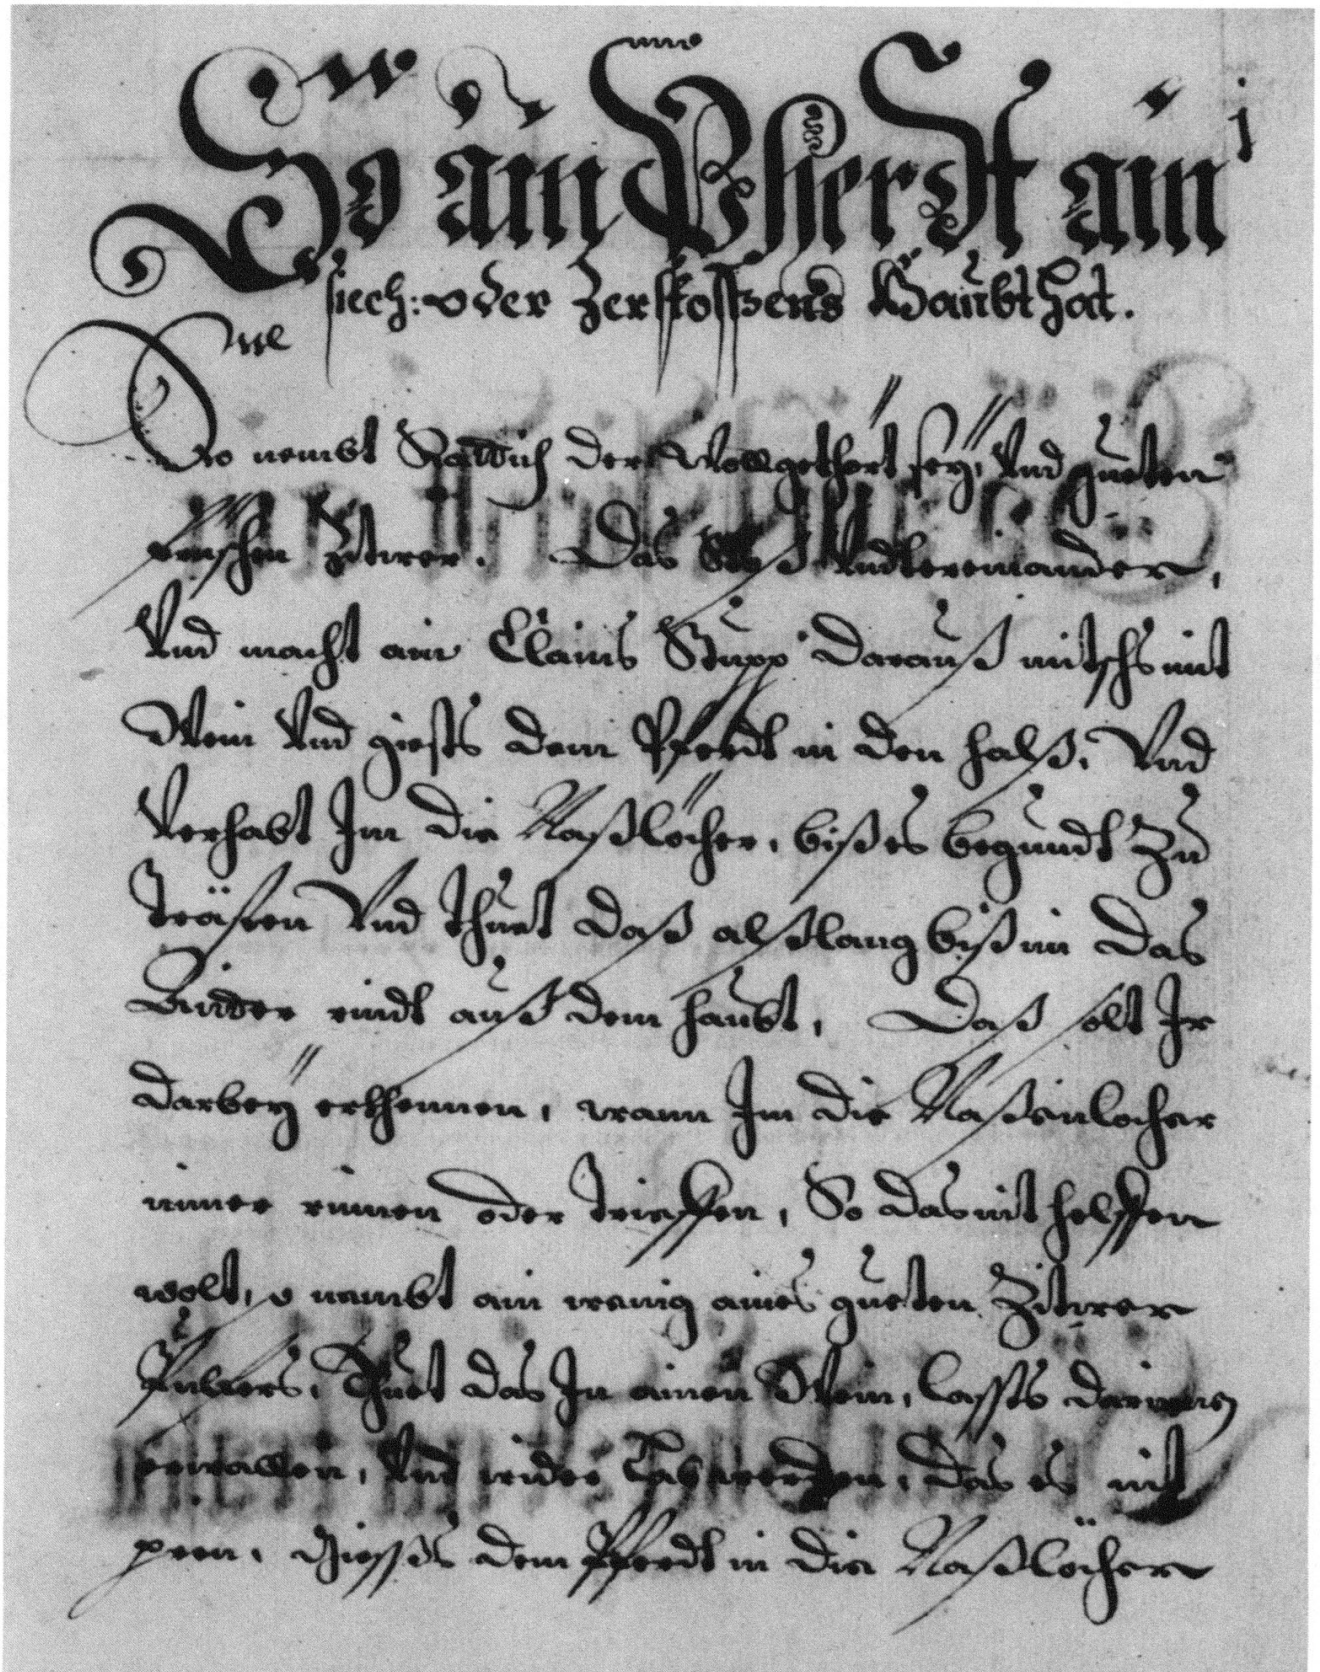 1
So ain Pherdt ain
siech: oder zerstossens Haubt hat.
So nembt Rättich der woll gethört sey, Vnd gueten
Zitwer. Das Stost Vndtereinander,
Vnd macht ain Clains Stupp darauß mitschs mit
Wein Vnd giests dem Pferdt in den halß, Vnd
Verhabt Im die Naßlöcher, biß es begundt Zu
Vnd thuet daß alßlang biß im das
rindt auß dem haubt, Daß solt Ir
darbey erkhennen, wann Im die Naßenlocher
immer rinnen oder trieffen, So das nit helffen
wolt, so nembt ain wenig aines gueten Zitwer
Puluers, Thuet das In ainen Wein, lassts darinnen
erwallen, Vnd wider Lab werden, das es nit
pren, Giesses dem Pferdt in die Naßlöcher